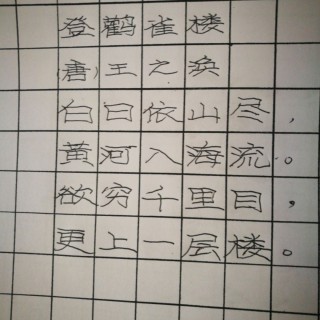 登鹳雀楼
(唐)王之奂
白日依山尽,
黄河入海流。
欲穷千里目,
更上一层楼。